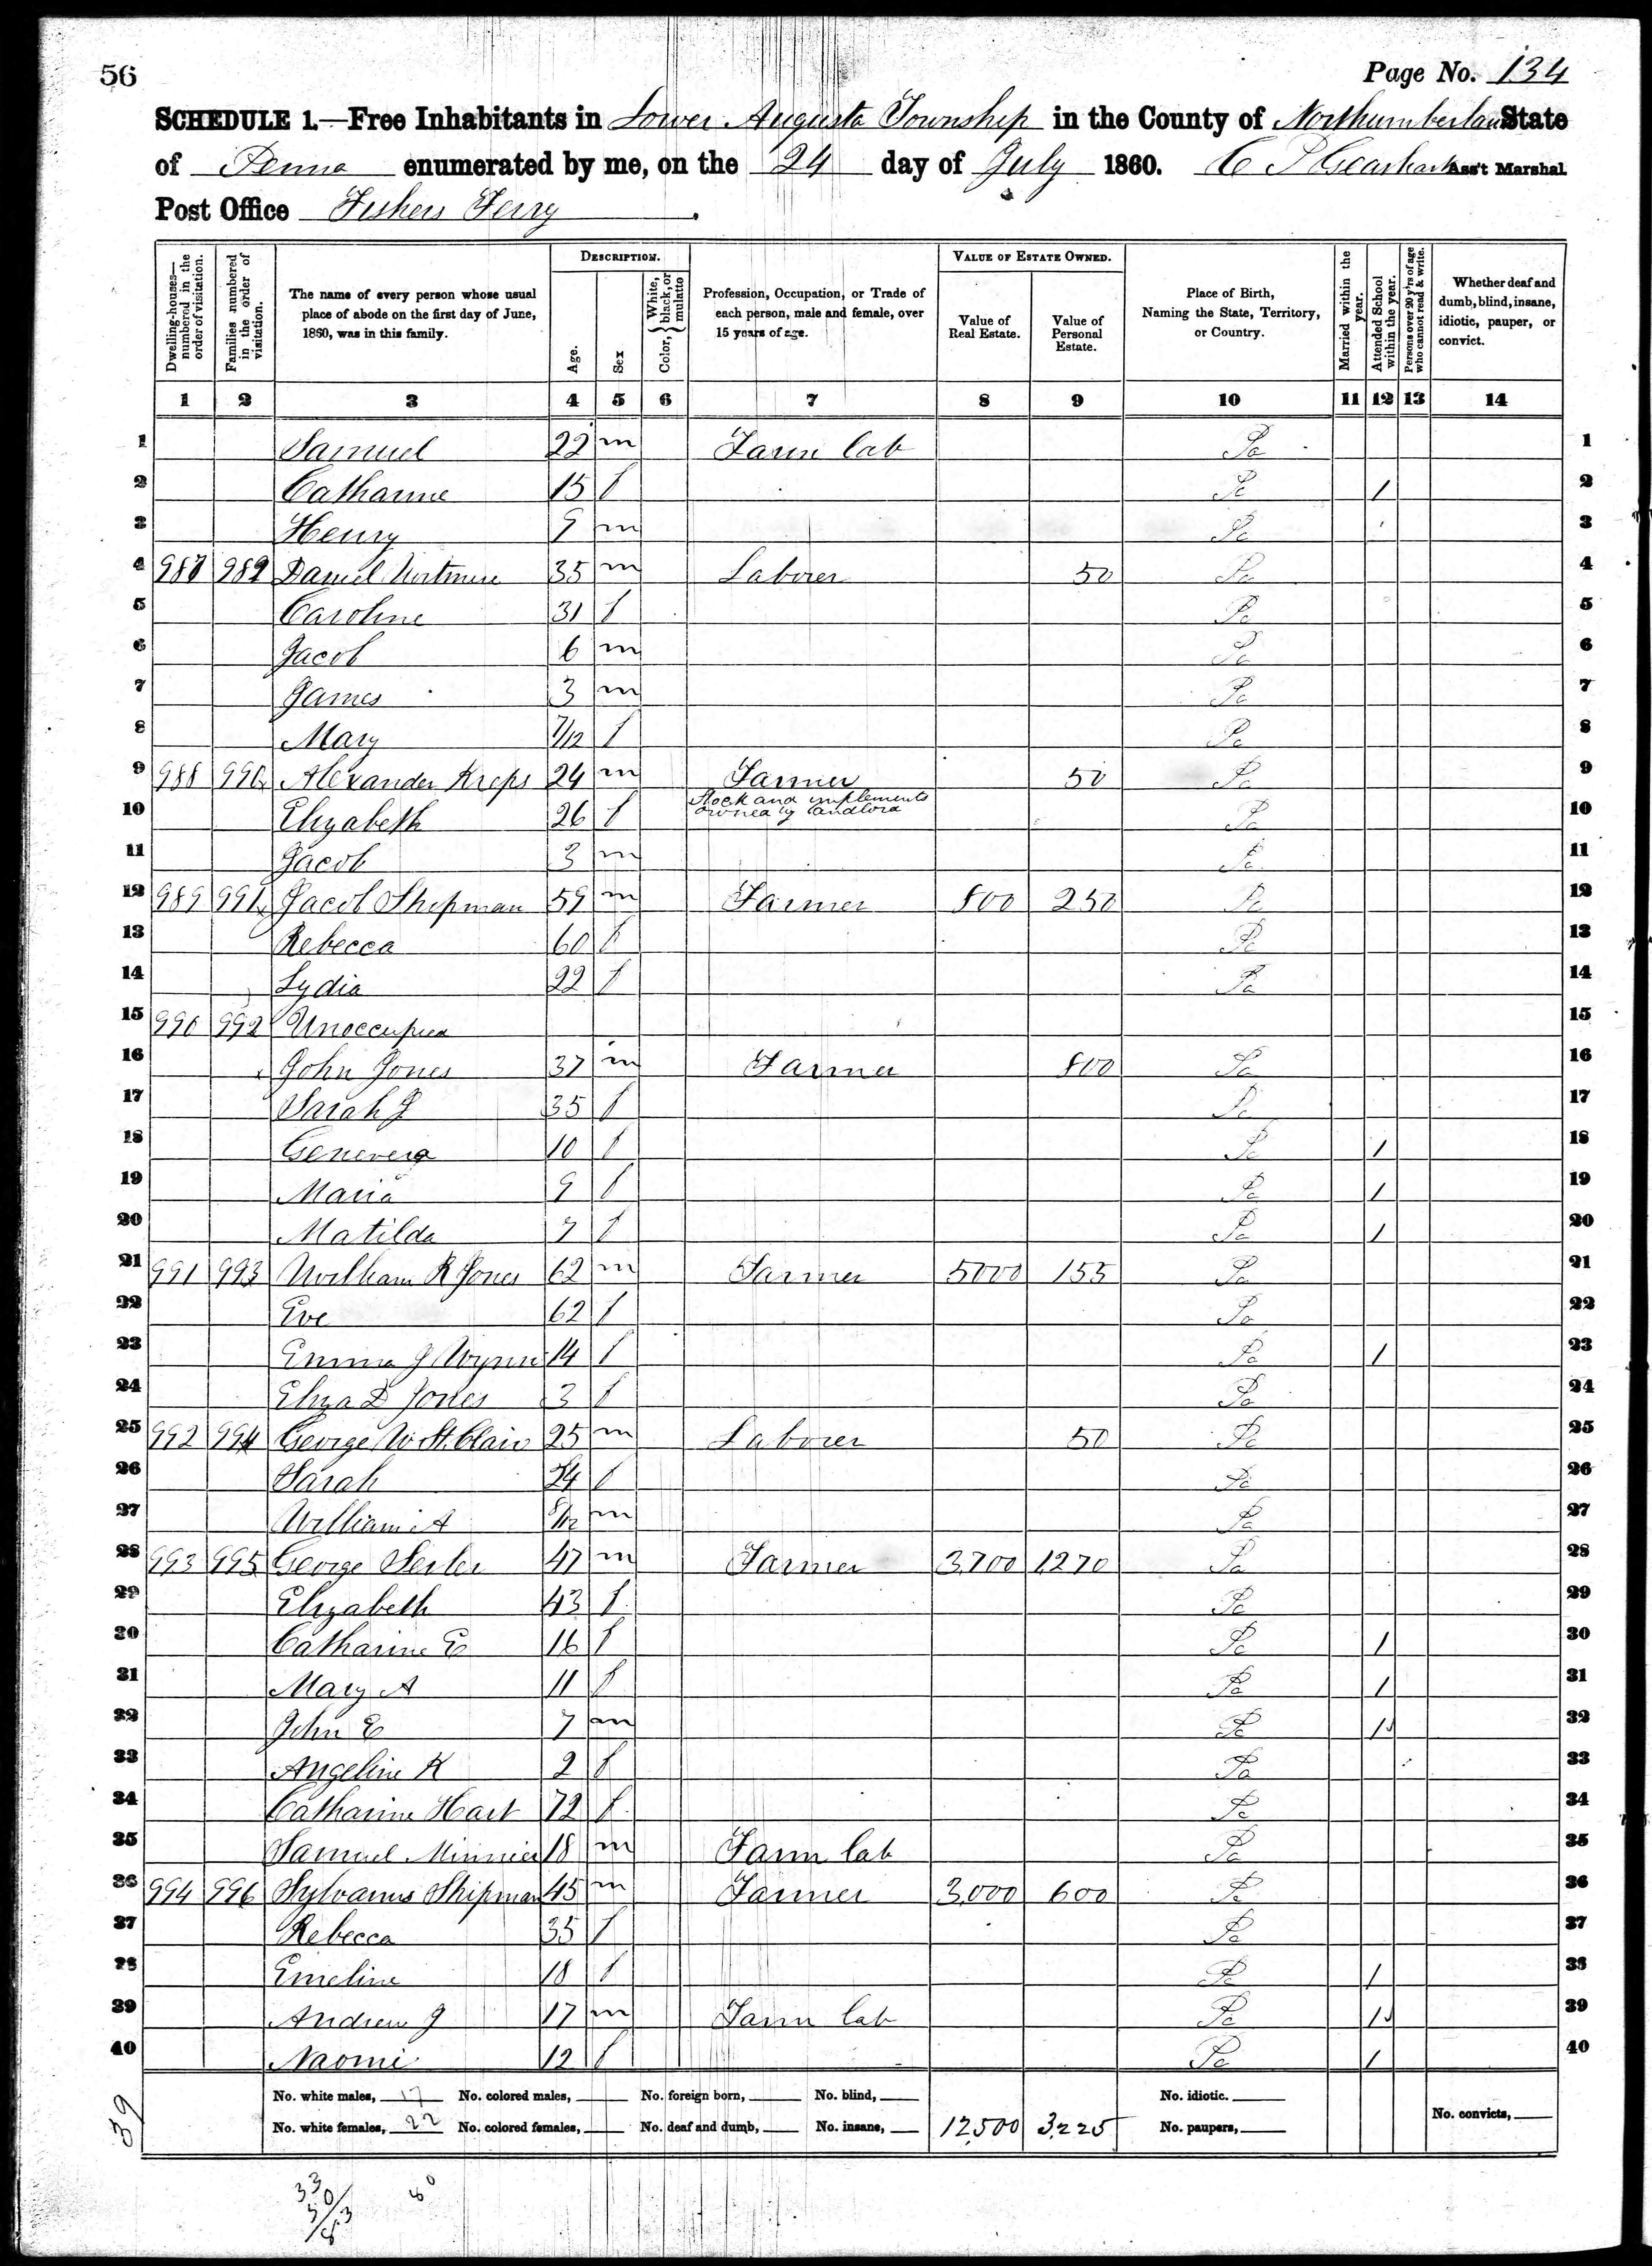 56
Page No. 134
SCHEDULE 1.—Free Inhabitants in Lower Augusta Township in the County of Northumberland State
of Penna enumerated by me, on the 24 day of July 1860. C P Gearhart Ass't Marshal
Post Office Fishers Ferry.
DESCRIPTION. VALUE OF ESTATE OWNED.
Dwelling-houses—numbered in the order of visitation. Families numbered in the order of visitation. The name of every person whose usual place of abode on the first day of June, 1860, was in this family. Age. Sex Color, White, black, or mulatto Profession, Occupation, or Trade of each person, male and female, over 15 years of age. Value of Real Estate. Value of Personal Estate. Place of Birth, Naming the State, Territory, or Country. Married within the year. Attended School within the year. Persons over 20 y'rs of age who cannot read & write. Whether deaf and dumb, blind, insane, idiotic, pauper, or convict.
1 2 3 4 5 6 7 8 9 10 11 12 13 14
1 Samuel 22 m Farm lab Pa 1
2 Catharine 15 f Pa 1 2
3 Henry 9 m Pa 3
4 987 989 Daniel 35 m Laborer 50 Pa 4
5 Caroline 31 f Pa 5
6 Jacob 6 m Pa 6
7 James 3 m Pa 7
8 Mary 7/12 f Pa 8
9 988 990 Alexander Kreps 24 m Farmer 50 Pa 9
Stock and implements
owned by landlord
10 Elizabeth 26 f Pa 10
11 Jacob 3 m Pa 11
12 989 991 Jacob Shipman 59 m Farmer 800 250 Pa 12
13 Rebecca 60 f Pa 13
14 Lydia 22 f Pa 14
15 990 992 Unoccupied 15
16 John Jones 37 m Farmer 800 Pa 16
17 Sarah J 35 f Pa 17
18 Genevera 10 f Pa 1 18
19 Maria 9 f Pa 1 19
20 Matilda 7 f Pa 1 20
21 991 993 William R Jones 62 m Farmer 5000 155 Pa 21
22 Eve 62 f Pa 22
23 Emma J Wynn 14 f Pa 1 23
24 Eliza D Jones 3 f Pa 24
25 992 994 George W St. Clair 25 m Laborer 50 Pa 25
26 Sarah 24 f Pa 26
27 William A 8/12 m Pa 27
28 993 995 George 47 m Farmer 3,700 1,270 Pa 28
29 Elizabeth 43 f Pa 29
30 Catharine E 16 f Pa 1 30
31 Mary A 11 f Pa 1 31
32 John E 7 m Pa 1 32
33 Angeline K 2 f Pa 33
34 Catharine Hart 72 f Pa 34
35 Samuel Minnier 18 m Farm lab Pa 35
36 994 996 Sylvanus Shipman 45 m Farmer 3,000 600 Pa 36
37 Rebecca 35 f Pa 37
38 Emeline 18 f Pa 1 38
39 Andrew J 17 m Farm lab Pa 1 39
40 Naomi 12 f Pa 1 40
No. white males, 17 No. colored males, No. foreign born, No. blind, No. idiotic.
No. white females, 22 No. colored females, No. deaf and dumb, No. insane, 12,500 3,225 No. paupers, No. convicts,
39
33
50
80